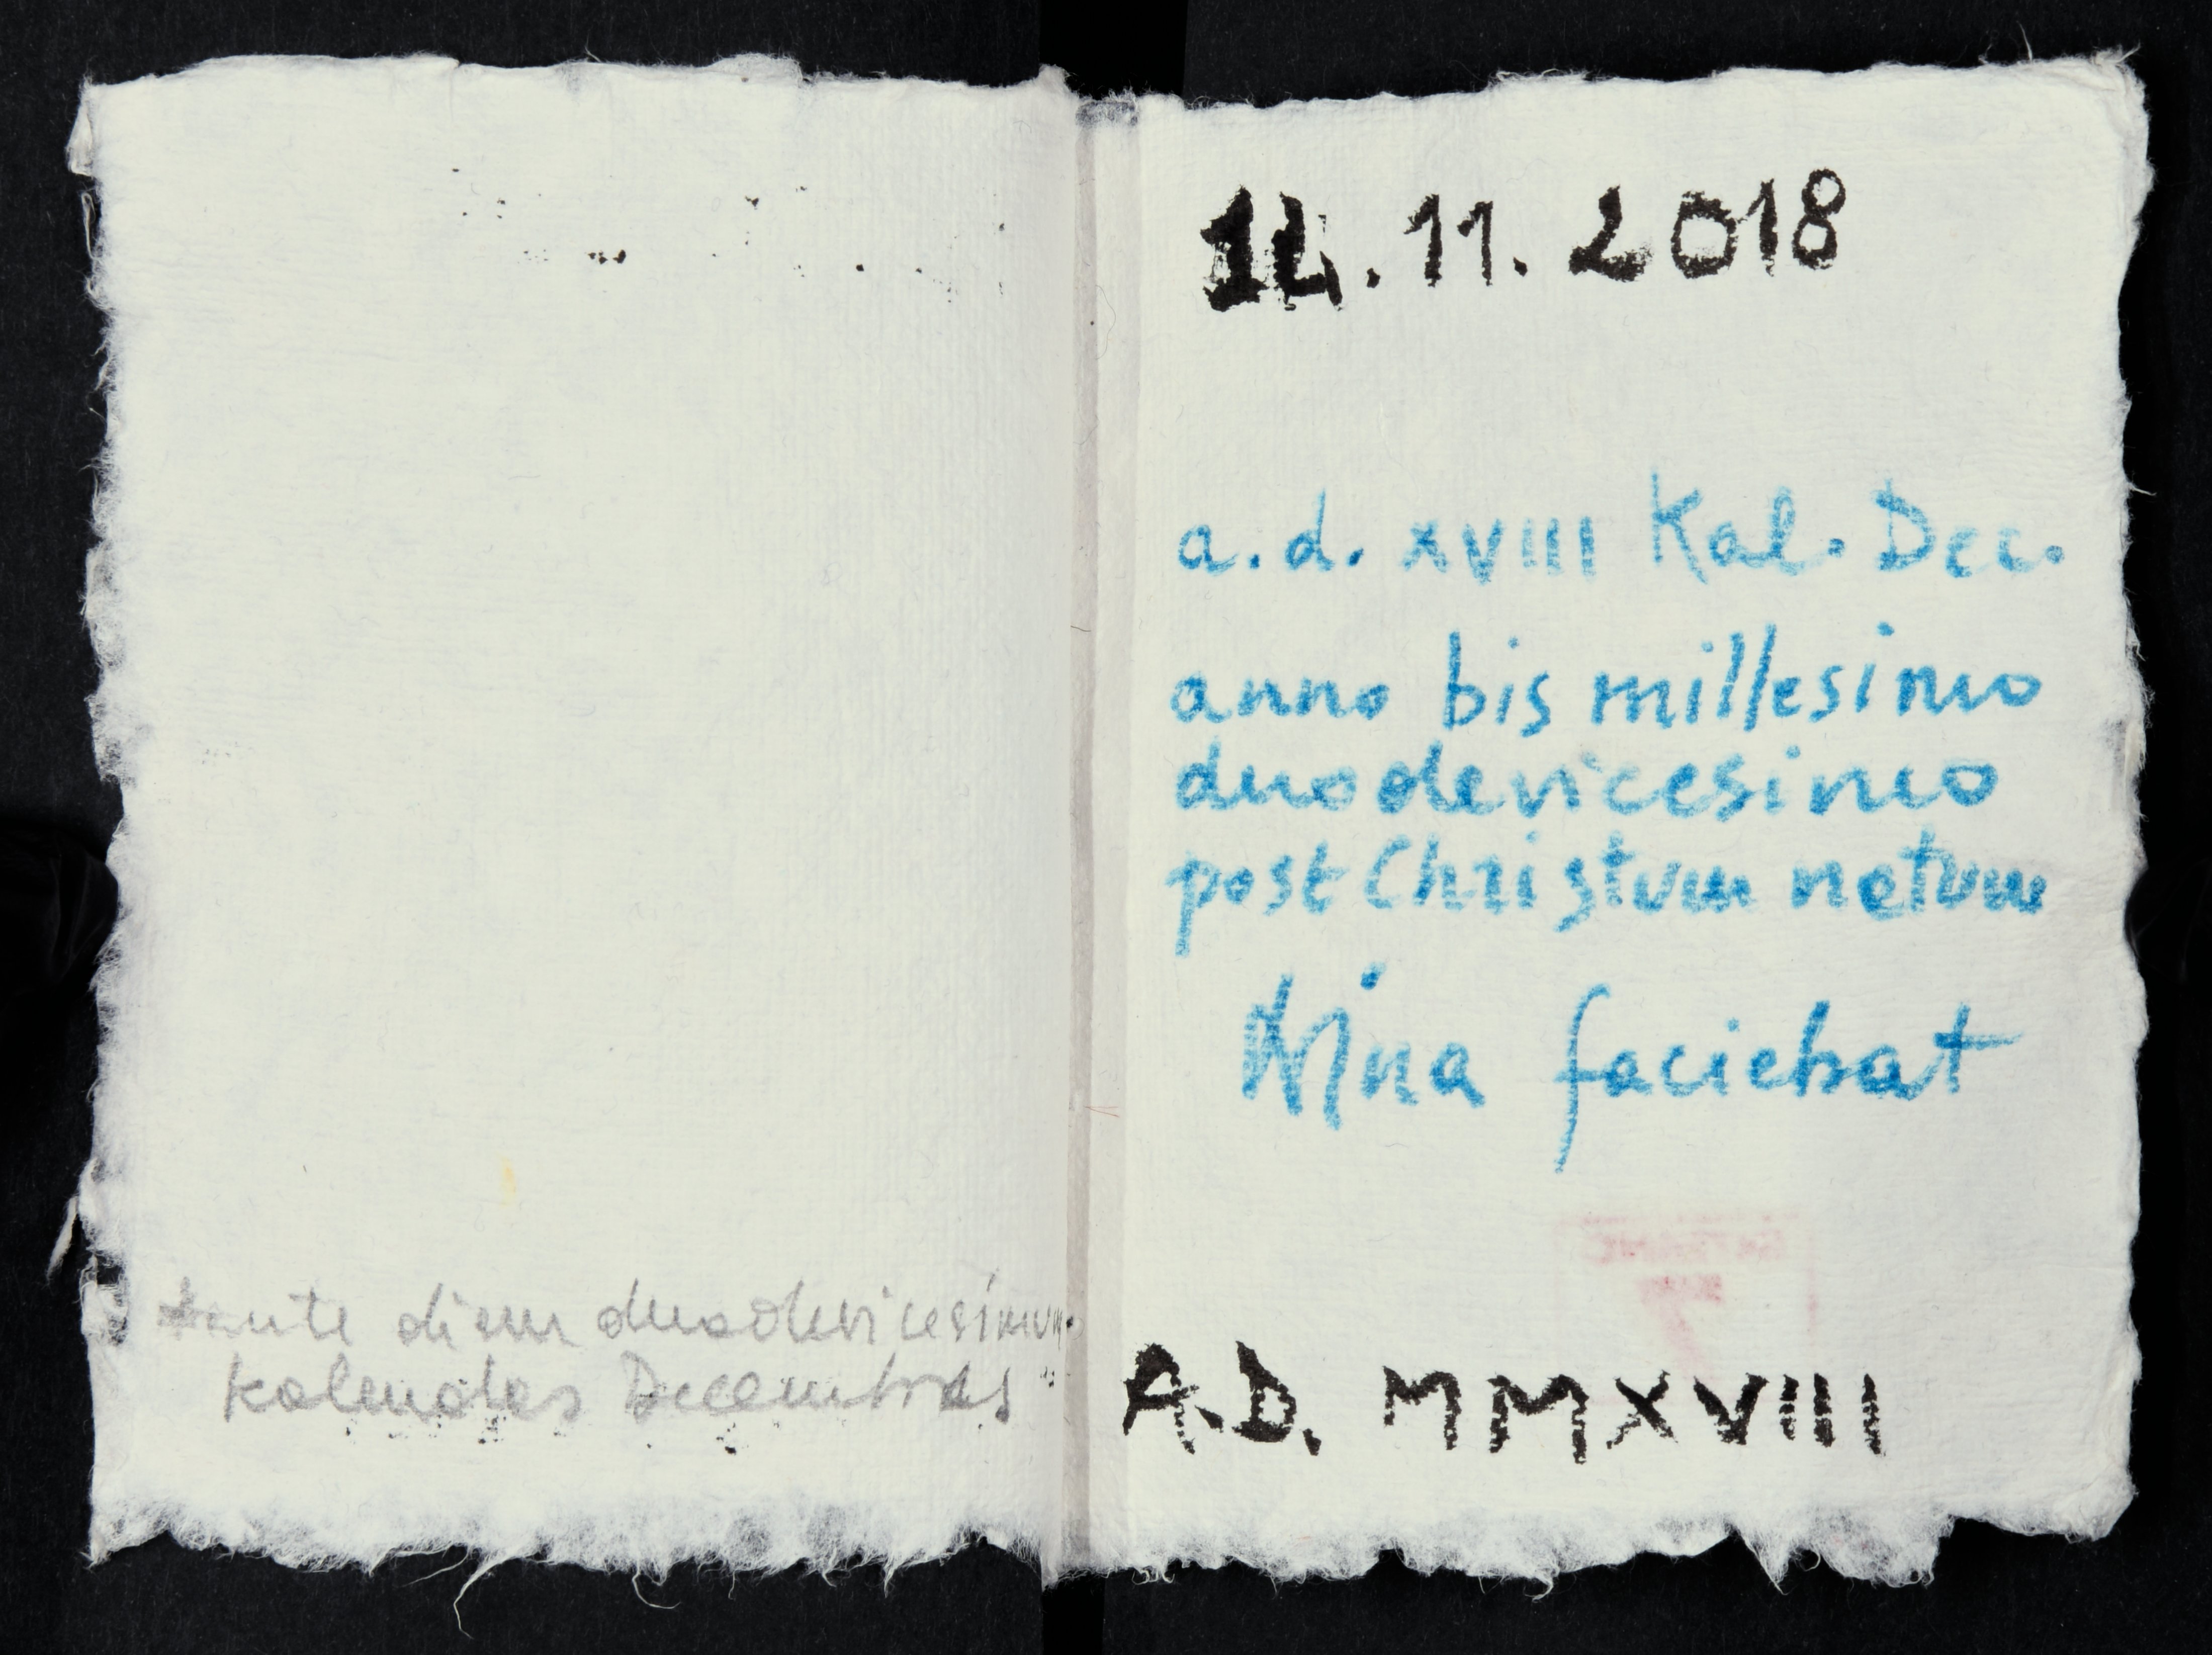 ante diem duodevicesimum
kalendas Decembras
14.11.2018
a.d. XVIII Kal. Dec.
anno bis millesimo
duodevicesimo
post Christum natum
Nina faciebat
A.D. MMXVIII